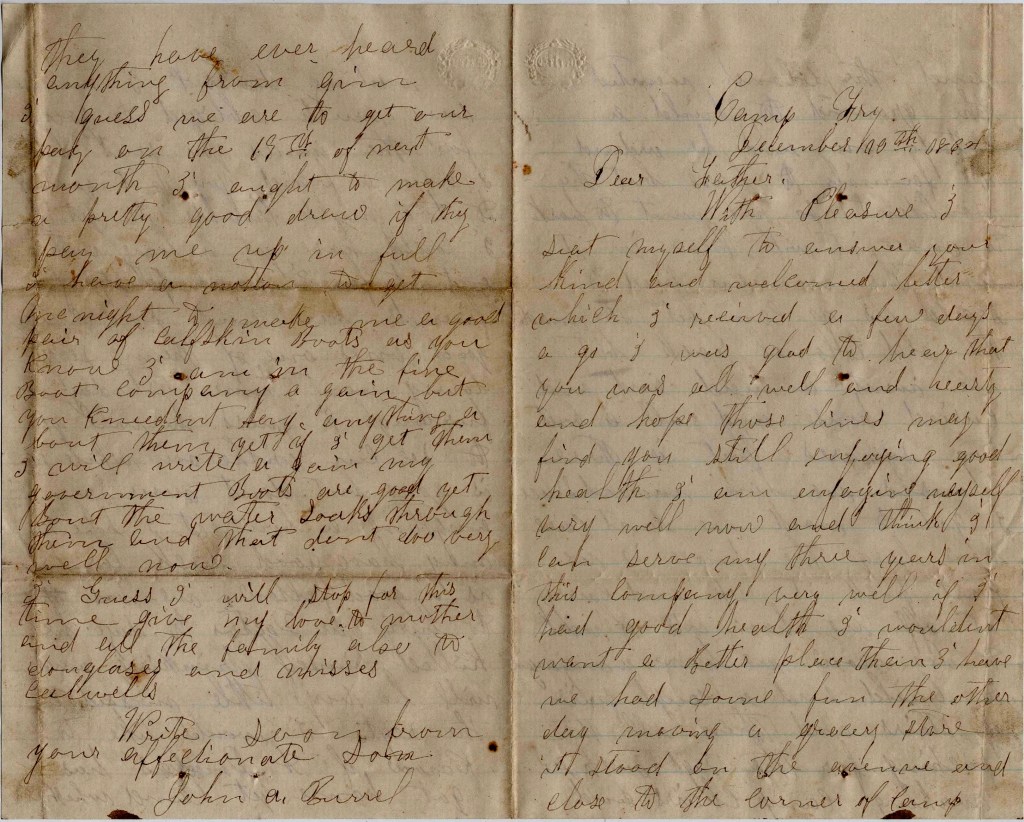 Camp Fry.
December 10th 1864
Dear Father.
With Pleasure I
seat myself to answer your
kind and welcomed letter
which I recieved a few days
a go I was glad to hear that
you was all well and hearty
and hope those lines may
find you still enjoying good
health I am enjoying myself
very well now and think I
can serve my three years in
this company very well if I
had good health I wouldent
want a better place than I have
we had some fun the other
day moving a grocery store
it stood on the avenue and
close to the corner of camp
they have ever heard
anything from
I guess we are to get our
pay on the 19th of next
month I aught to make
a pretty good draw if thy
pay me up in full
I have a notion to get
to make me a good
pair of calfskin Boots as you
know I am in the fine
Boot company a gain but
you kneedent say anything a
bout them yet if I get them
I will write a gain my
government Boots are good yet
but the water soaks through
them and that dont doo very
well now.
I Guess I will stop for this
time give my love to mother
and all the family also to
douglases and misses
calwells
Write soon from
your affectionate son
John A. Burrel